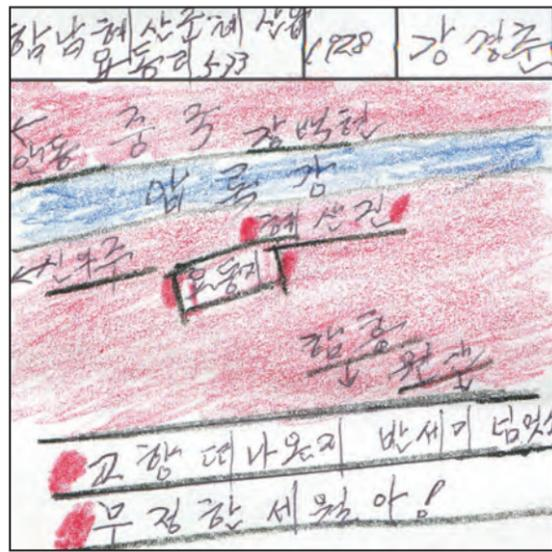 함남 혜산군 혜산읍
요동리 533
1928
강경준
← 안동 중국 장백현
압록강
혜산진
← 신의주
요동리
함흥 원산
고향 떠나온지 반세기 넘었
무정한 세월아!